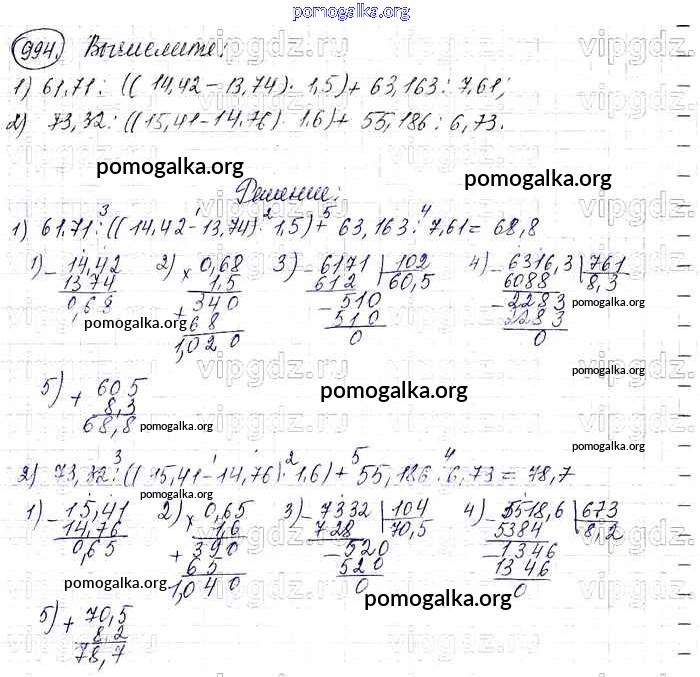 pomogalka.org
994. Вычислите:
1) 61,71 : ((14,42 - 13,74) · 1,5) + 63,163 : 7,61;
2) 73,32 : ((15,41 - 14,76) · 1,6) + 55,186 : 6,73.
pomogalka.org pomogalka.org
Решение:
3 1 2 5 4
1) 61,71 : ((14,42 - 13,74) · 1,5) + 63,163 : 7,61 = 68,8
1) - 14,42 2) × 0,68 3) - 6171 | 102 4) - 6316,3 | 761
13 74 1,5 612 60,5 6088 8,3
0,68 + 340 - 510 - 2283
pomogalka.org 68 510 pomogalka.org 2283
1,020 0 0
pomogalka.org
5) + 60 5 pomogalka.org
8,3
68,8 pomogalka.org
3 1 2 5 4
2) 73,32 : ((15,41 - 14,76) · 1,6) + 55,186 : 6,73 = 78,7
pomogalka.org
1) - 15,41 2) × 0,65 3) - 7332 | 104 4) - 5518,6 | 673
14,76 1,6 728 70,5 5384 8,2
0,65 + 390 - 520 - 1346
pomogalka.org 65 520 1346
1,040 0 0
pomogalka.org
5) + 70,5
8,2
78,7 pomogalka.org